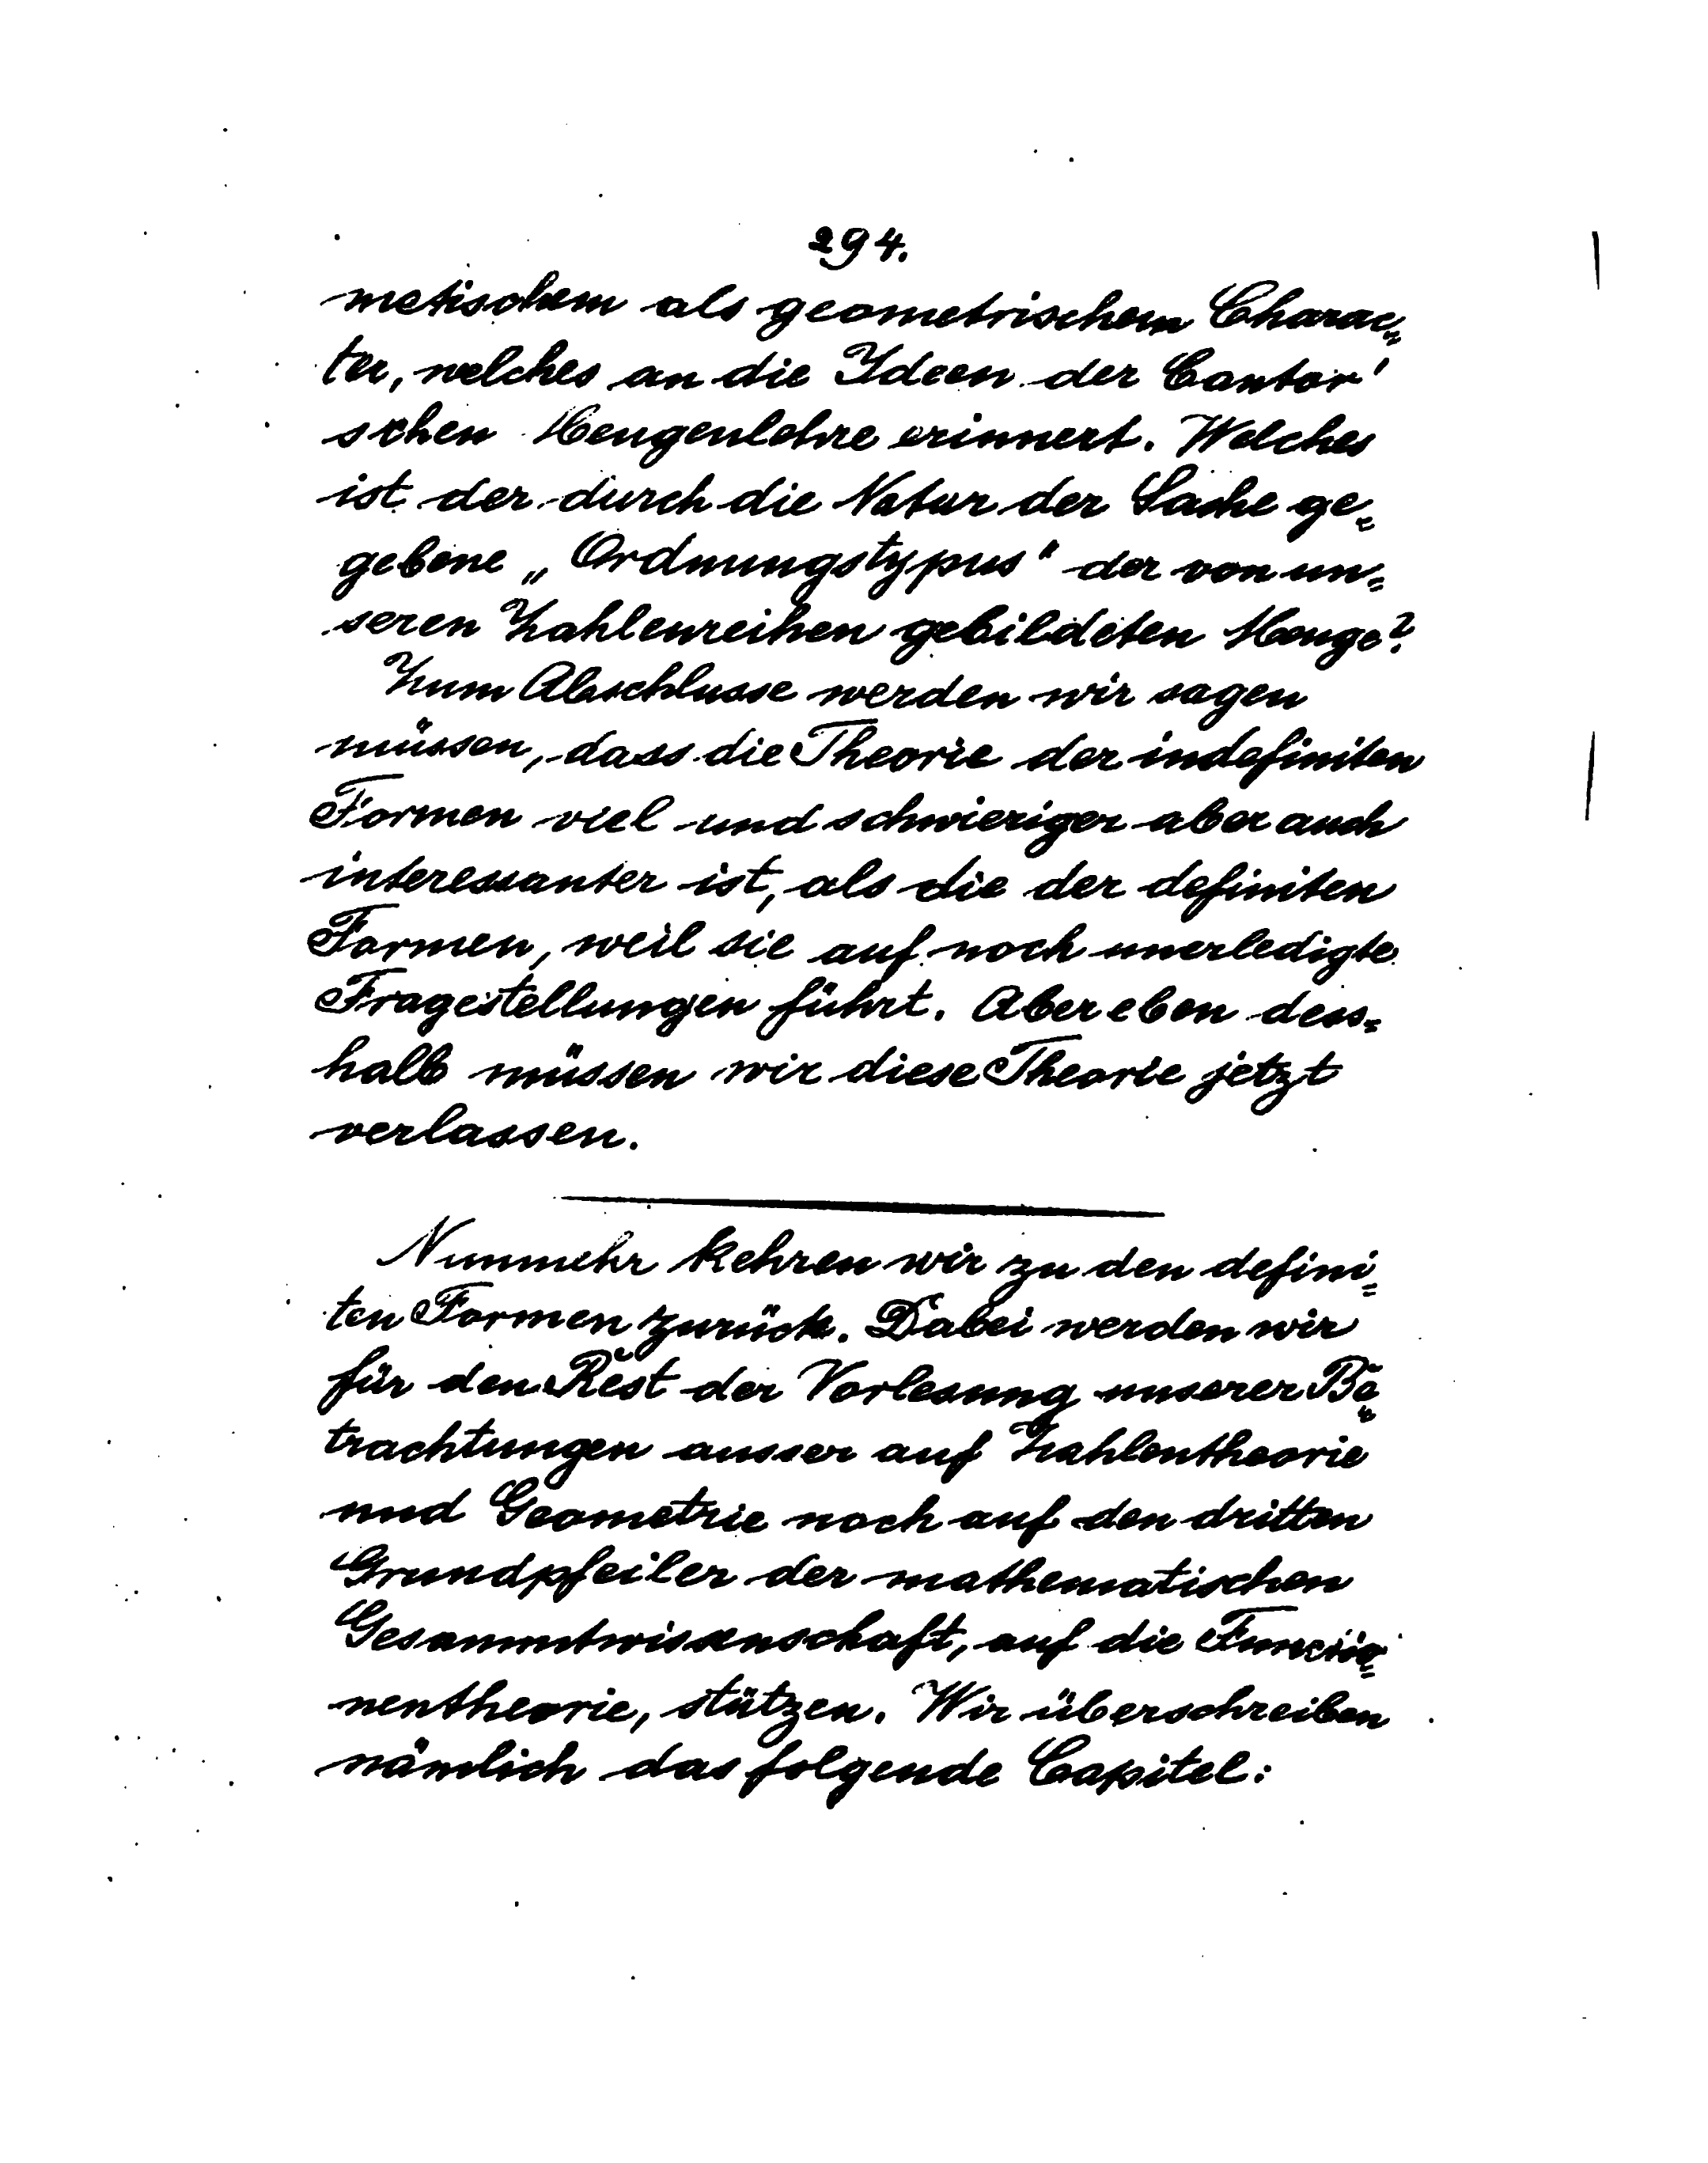 294.
metischem als geometrischem Charac=
ter, welches an die Ideen der Cantor'
schen Mengenlehre erinnert. Welches
ist der durch die Natur der Sache ge=
gebene „Ordnungstypus" der von un=
seren Zahlenreihen gebildeten Menge?
Zum Abschlusse werden wir sagen
müssen, dass die Theorie der indefiniten
Formen viel und schwieriger aber auch
interessanter ist, als die der definiten
Formen, weil sie auf noch unerledigte
Fragestellungen führt. Aber eben dess=
halb müssen wir diese Theorie jetzt
verlassen.
Nunmehr kehren wir zu den defini=
ten Formen zurück. Dabei werden wir
für den Rest der Vorlesung unserer Be=
trachtungen ausser auf Zahlentheorie
und Geometrie noch auf den dritten
Grundpfeiler der mathematischen
Gesammtwissenschaft, auf die Functio=
nentheorie, stützen. Wir überschreiben
nämlich das folgende Capitel: